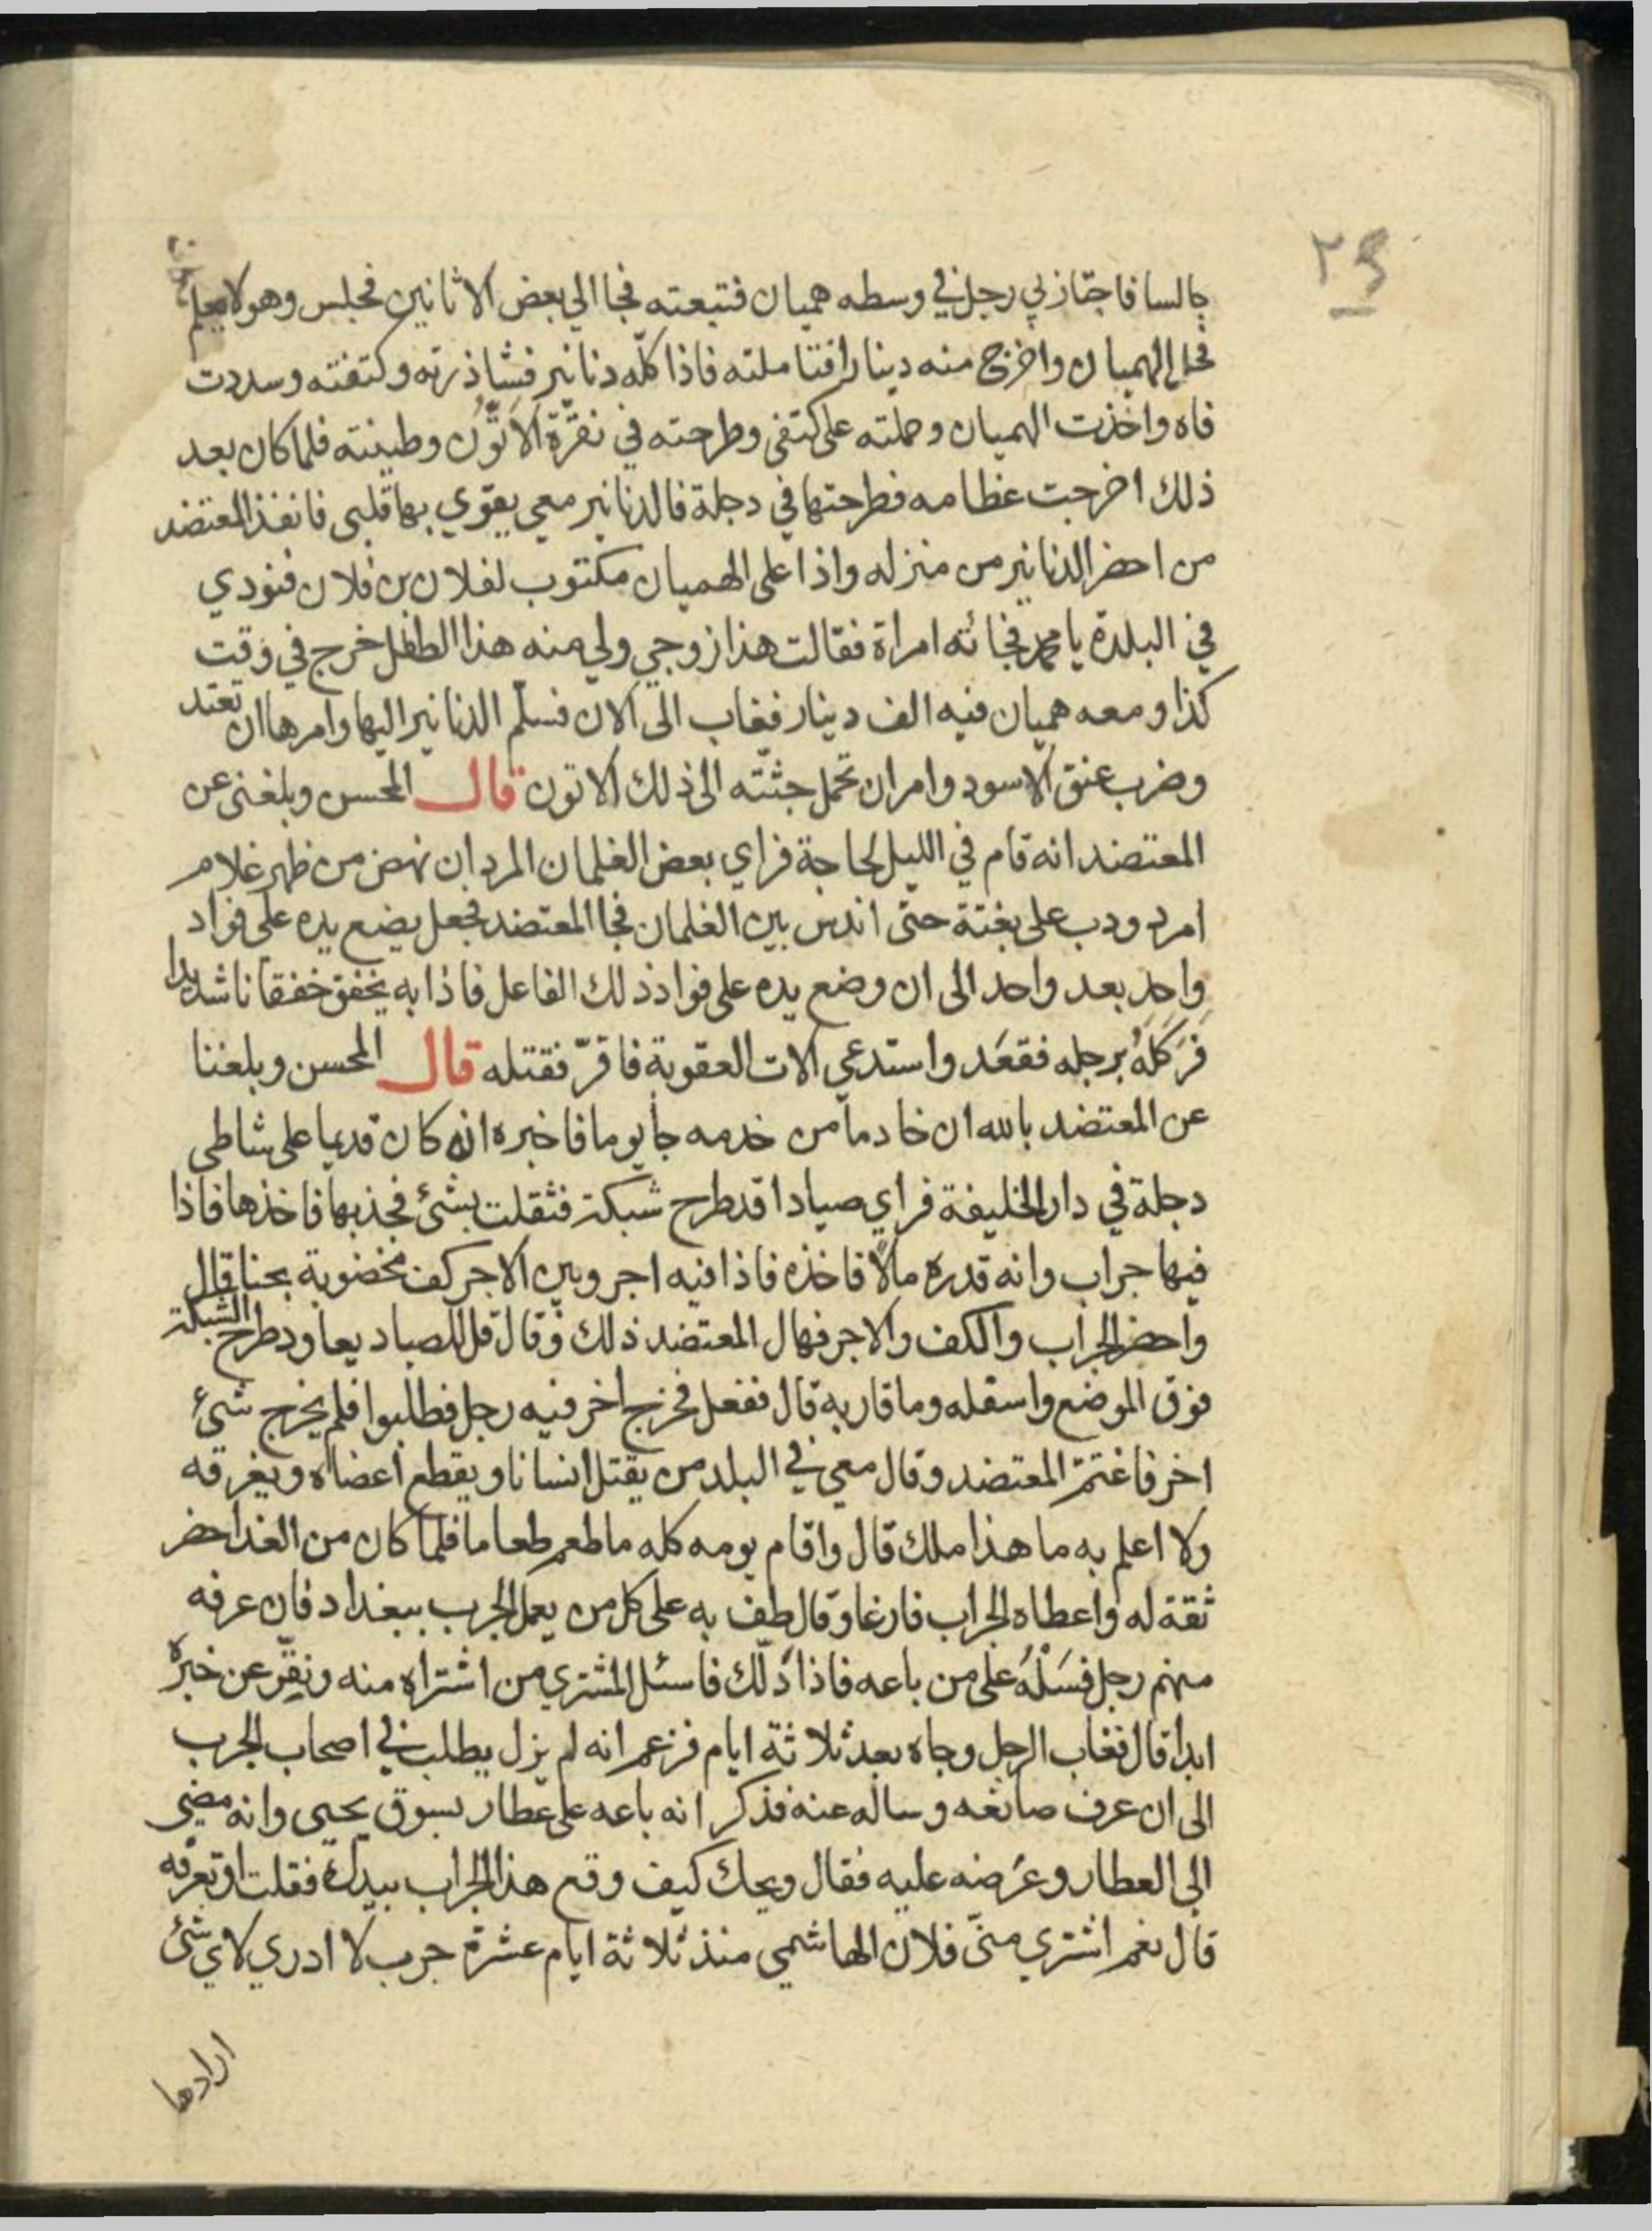 ٢٤
جالسا فاجتاز بي رجل في وسطه هميان فتبعته فجا الي بعض الاثانين فجلس وهو لا يعلم
فحل الهميان واخرج منه دينارا فتاملته فاذا كلّه دنانير فشاذرته وكتفته وسددت
فاه واخذت الهميان وحملته على كتفي وطرحته في نقرة الاتّون وطينته فلما كان بعد
ذلك اخرجت عظامه فطرحتها في دجلة فالدنانير معي يقوي بها قلبي فانفذ المعتضد
من احضر الدنانير من منزله واذا على الهميان مكتوب لفلان بن فلان فنودي
في البلدة يا محمد فجائته امراة فقالت هذا زوجي ولي منه هذا الطفل خرج في وقت
كذا ومعه هميان فيه الف دينار فغاب الى الان فسلّم الدنانير اليها وامرها ان تعتد
وضرب عنق الاسود وامر ان تحمل جثّته الى ذلك الاتون قال المحسن وبلغني عن
المعتضد انه قام في الليل لحاجة فراي بعض الغلمان المردان نهض من ظهر غلام
امرد ودب على بغتة حتى اندس بين الغلمان فجا المعتضد فجعل يضع يده على فواد
واحدٍ بعد واحد الى ان وضع يده على فواد ذلك الفاعل فاذا به يخفق خفقانا شديدا
فَرَكَلَهُ برجله فقعَد واستدعي الات العقوبة فاقرّ فقتله قال المحسن وبلغنا
عن المعتضد بالله ان خادما من خدمه جا يوما فاخبره انه كان قديما على شاطي
دجلة في دار الخليفة فراي صيادا قد طرح شبكة فثقلت بشئ فجذبها فاخذها فاذا
فيها جراب وانه قدره مالًا فاخذه فاذا فيه اجر وبين الاجر كف مخضوبة بحنا قال
واحضر الجراب والكف والاجر فهال المعتضد ذلك وقال قل للصياد يعاود طرح الشبكة
فوق الموضع واسفله وما قاربه قال ففعل فخرج اخر فيه رجل فطلبوا فلم يخرج شئ
اخر فاغتمّ المعتضد وقال معي في البلد من يقتل انسانا ويقطع أعضاه ويغرقه
ولا اعلم به ما هذا ملك قال واقام يومه كله ما طعم طعاما فلما كان من الغد احضر
ثقة له واعطاه الجراب فارغا وقال طف به على كل من يعمل الجرب ببغداد فان عرفه
منهم رجل فسَلْهُ على من باعه فاذا دلّك فاسئل المشتري من اشتراه منه ونقّر عن خبره
ابدا قال فغاب الرجل وجاه بعد ثلاثة ايام فزعم انه لم يزل يطلب في اصحاب الجرب
الى ان عرف صانعه وساله عنه فذكر انه باعه على عطار بسوق يحيى وانه مضي
الى العطار وعرضه عليه فقال ويحك كيف وقع هذا الجراب بيدك فقلت اوتعرفه
قال نعم اشتري منّى فلان الهاشمي منذ ثلاثة ايام عشرة جرب لا ادري لاي شئ
ارادها